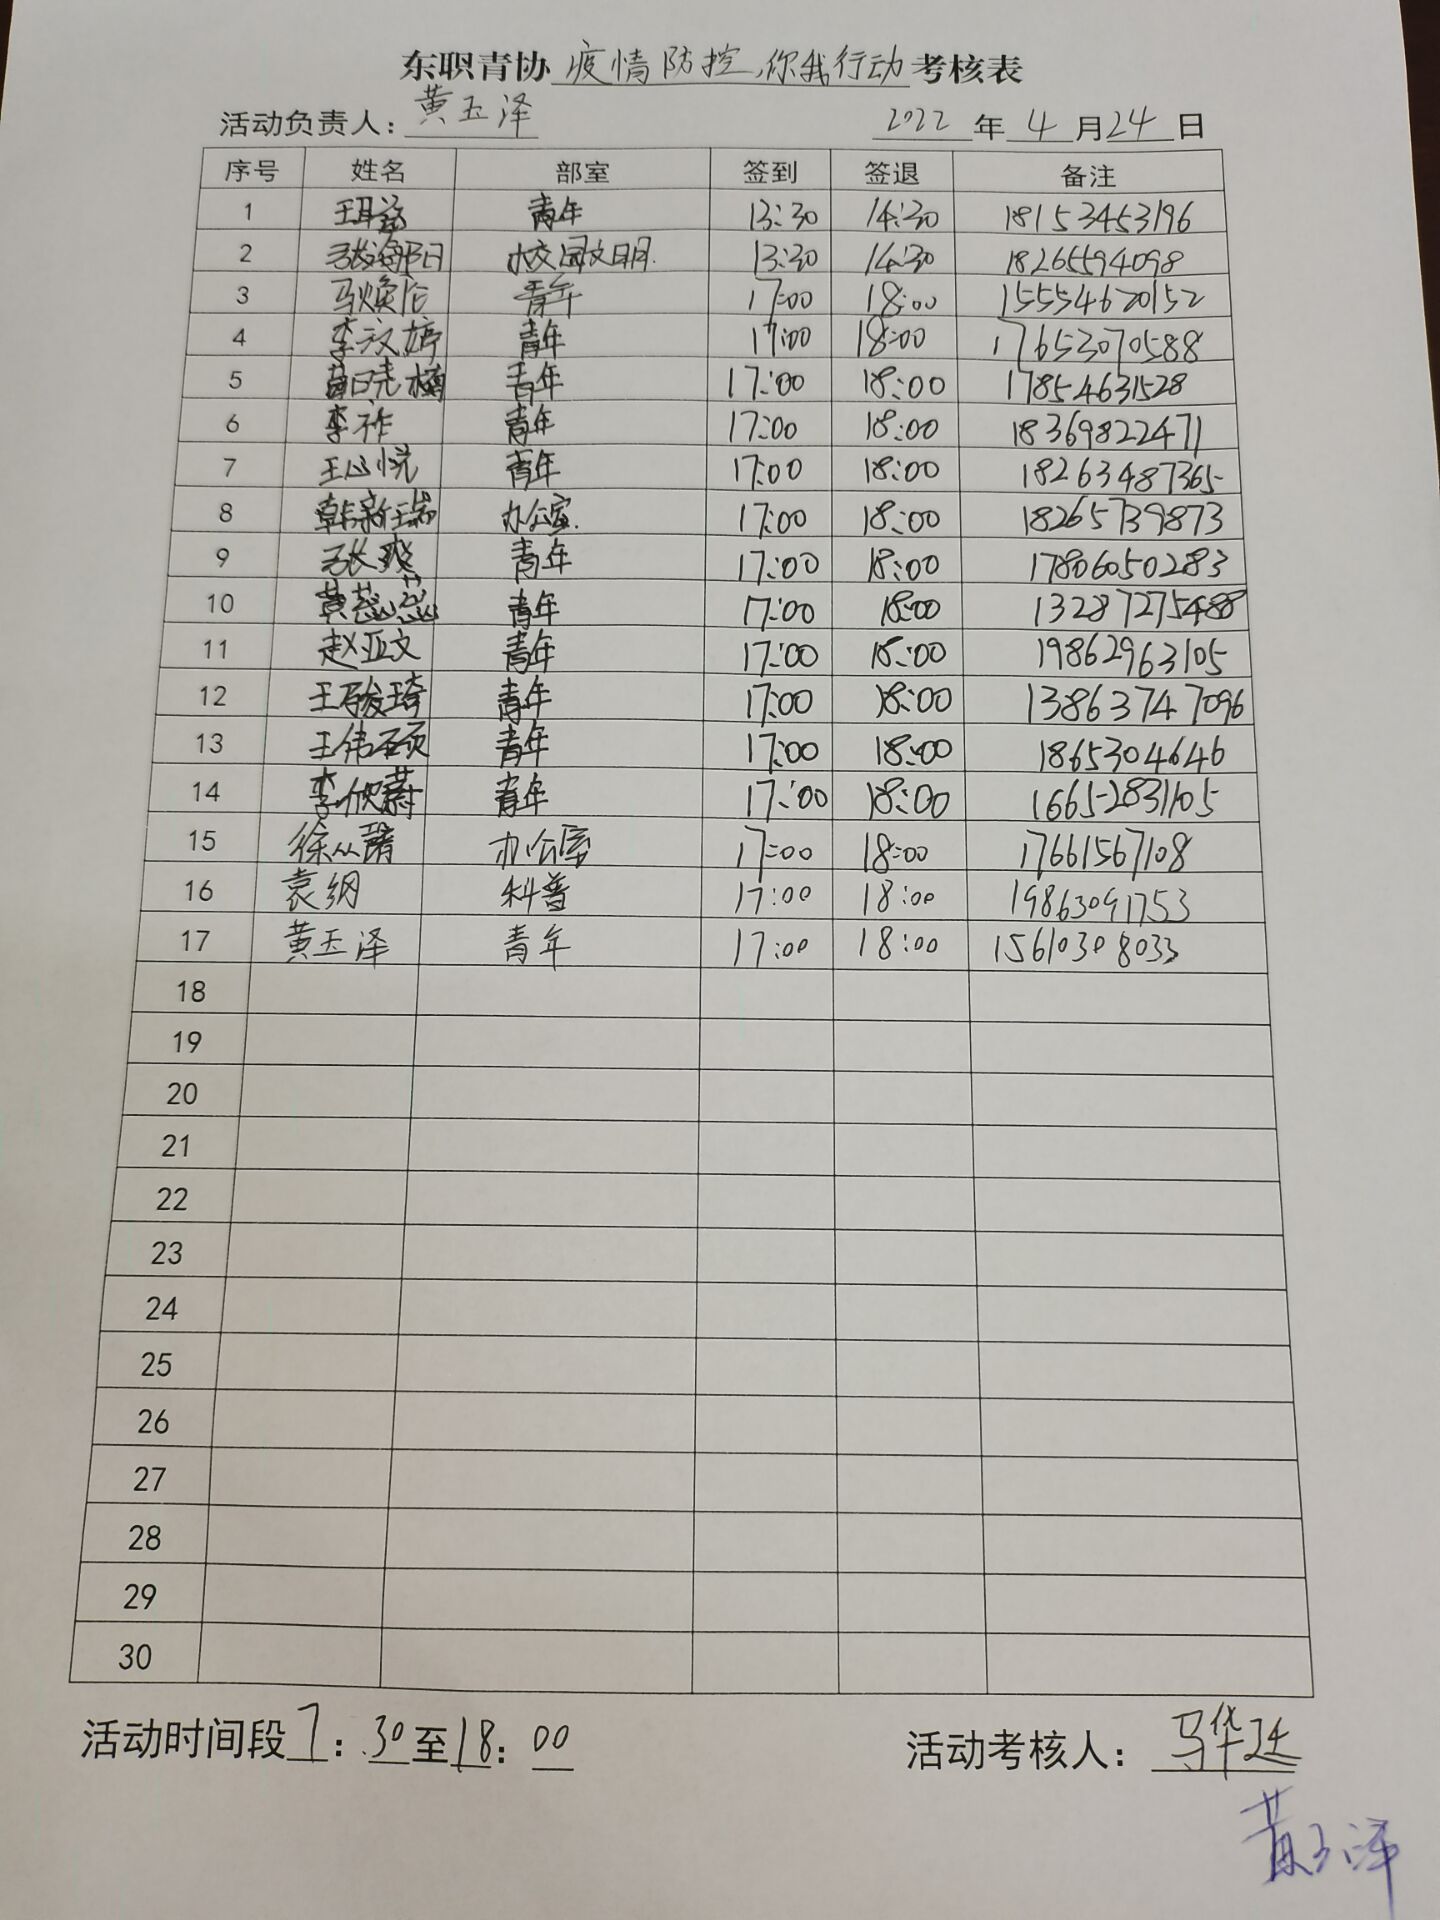 东职青协 疫情防控,你我行动 考核表
活动负责人: 黄玉泽 2022 年 4 月 24 日
序号 姓名 部室 签到 签退 备注
1 青年 13:30 14:30 18153453196
2 校园文明 13:30 14:30 18265594098
3 马焕 青年 17:00 18:00 15554620152
4 李汶婷 青年 17:00 18:00 17653070588
5 青年 17:00 18:00 17854631528
6 李祚 青年 17:00 18:00 18369822471
7 王心悦 青年 17:00 18:00 18263487365
8 韩新瑞 办公室. 17:00 18:00 18265739873
9 张爽 青年 17:00 18:00 17806050283
10 黄蕊蕊 青年 17:00 18:00
11 赵亚文 青年 17:00 18:00 19862963105
12 王骏琦 青年 17:00 18:00 13863747096
13 王伟硕 青年 17:00 18:00 1865304646
14 李欣蔚 青年 17:00 18:00 16652831105
15 徐从 办公室 17:00 18:00 17661567108
16 袁纲 科普 17:00 18:00 19863091753
17 黄玉泽 青年 17:00 18:00 15610308033
18
19
20
21
22
23
24
25
26
27
28
29
30
活动时间段 7:30 至 18:00 活动考核人: 马华廷
黄玉泽